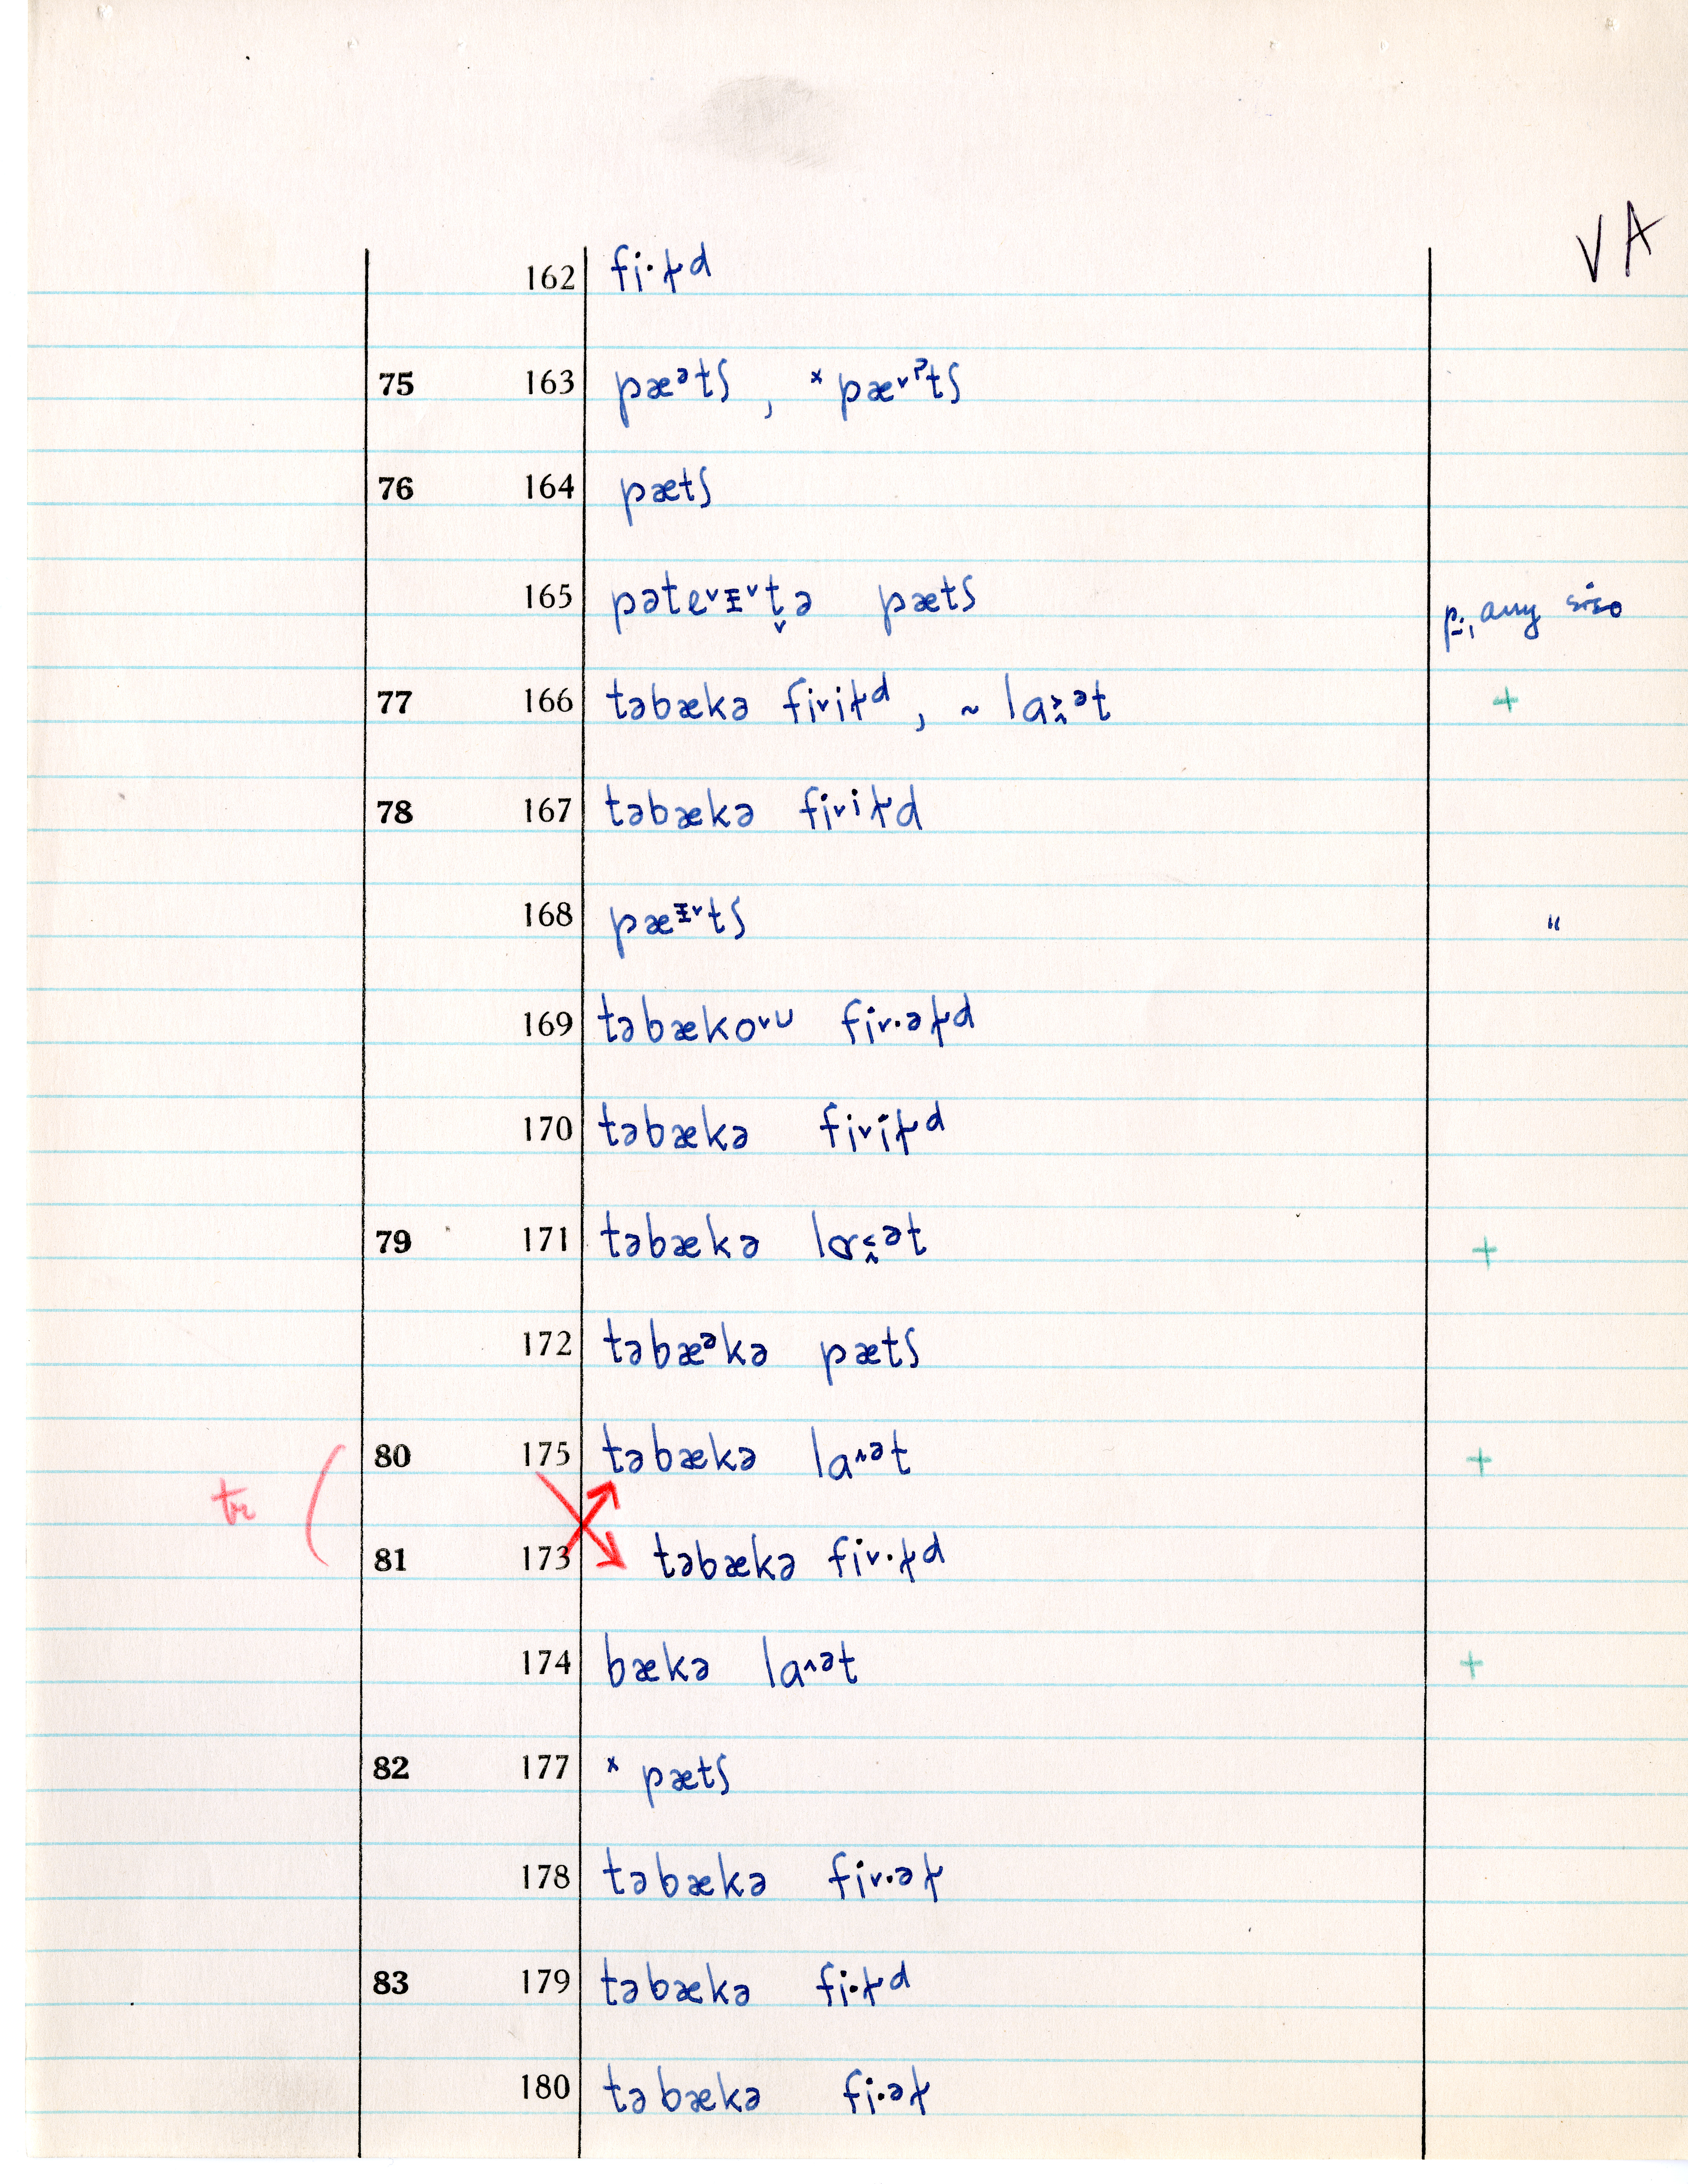 VA
162 fi·ɫd
75 163 pæᵊtʃ , ˣ pæ˅ˀtʃ
76 164 pætʃ
165 pəte˅ɪ˅t̬ə pætʃ
any size
77 166 təbækə fi˅iɫᵈ , ~ la˃̭ᵊt +
78 167 təbækə fi˅iɫd
168 pæᶦ˅tʃ "
169 təbæko˅ᴜ fi˅·əɫd
170 təbækə fi˅iɫᵈ
79 171 təbækə lɑ˂̭ᵊt +
172 təbæᵊkə pætʃ
80 175 təbækə la˄ᵊt +
tr
81 173 təbækə fi˅·ɫd
174 bækə la˄ᵊt +
82 177 ˣ pætʃ
178 təbækə fi˅·əɫ
83 179 təbækə fi·ɫᵈ
180 təbækə fi·əɫ